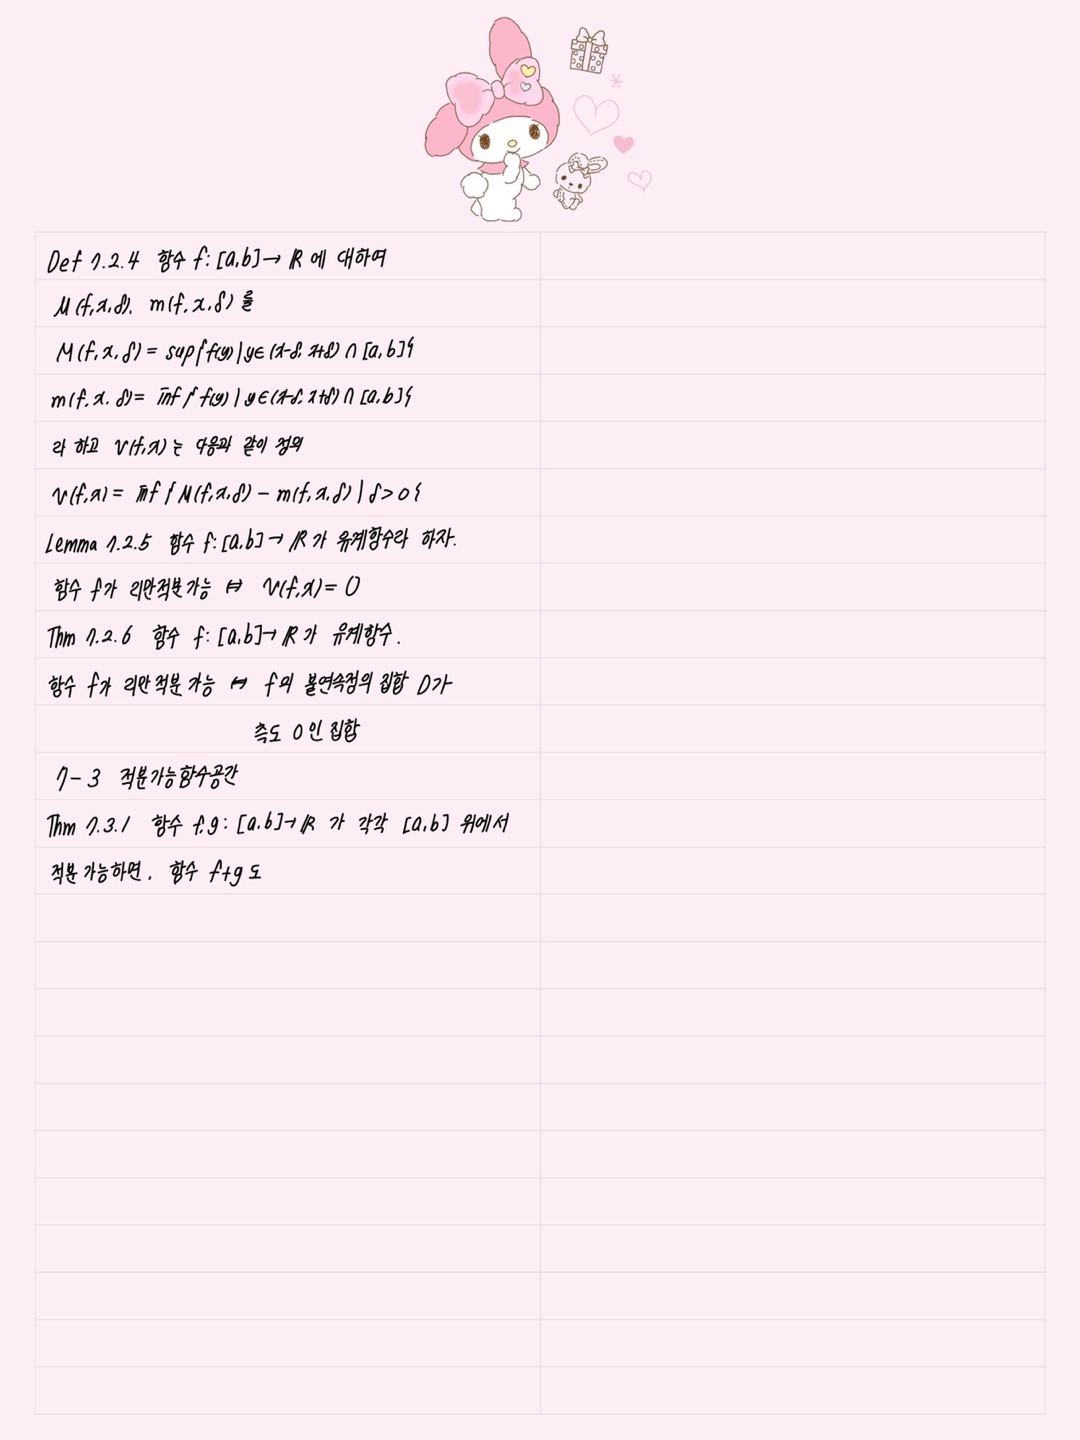 Def 7.2.4 함수 f: [a,b]→ ℝ 에 대하여
M(f,x,δ), m(f,x,δ) 를
M(f,x,δ) = sup{f(y)|y∈(x-δ, x+δ) ∩ [a,b]}
m(f,x,δ) = inf{f(y)|y∈(x-δ, x+δ) ∩ [a,b]}
라 하고 v(f,x) 는 다음과 같이 정의
v(f,x) = inf{M(f,x,δ) - m(f,x,δ) | δ>0}
Lemma 7.2.5 함수 f: [a,b] → ℝ 가 유계함수라 하자.
함수 f가 리만적분가능 ⇔ v(f,x) = 0
Thm 7.2.6 함수 f: [a,b]→ ℝ 가 유계함수.
함수 f가 리만적분가능 ⇔ f의 불연속점의 집합 D가
측도 0인 집합
7-3 적분가능함수공간
Thm 7.3.1 함수 f,g: [a,b]→ ℝ 가 각각 [a,b] 위에서
적분가능하면, 함수 f+g도